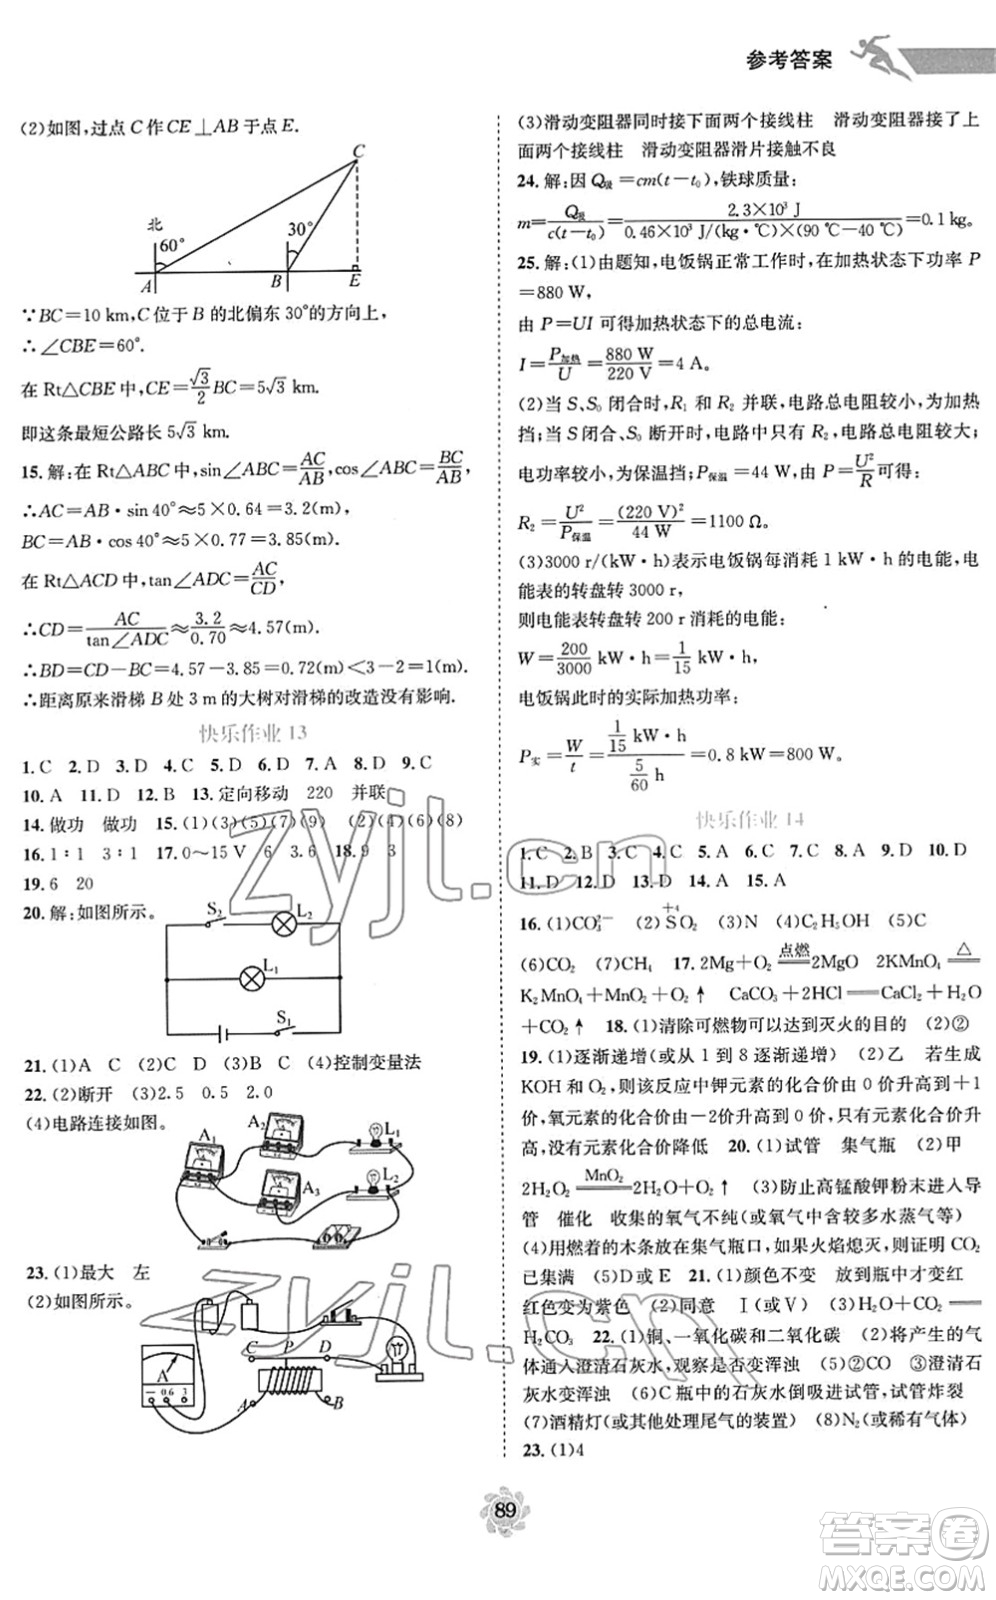 参考答案
(2)如图,过点 C 作 CE⊥AB 于点 E.
C
北
60°
30°
A
B
E
∵BC=10 km,C 位于 B 的北偏东 30°的方向上,
∴∠CBE=60°.
在 Rt△CBE 中,CE=√3/2 BC=5√3 km.
即这条最短公路长 5√3 km.
15.解:在 Rt△ABC 中,sin∠ABC=AC/AB,cos∠ABC=BC/AB,
∴AC=AB·sin 40°≈5×0.64=3.2(m),
BC=AB·cos 40°≈5×0.77=3.85(m).
在 Rt△ACD 中,tan∠ADC=AC/CD,
∴CD=AC/tan∠ADC≈3.2/0.70≈4.57(m).
∴BD=CD-BC=4.57-3.85=0.72(m)<3-2=1(m).
∴距离原来滑梯 B 处 3 m 的大树对滑梯的改造没有影响.
快乐作业 13
1.C 2.D 3.D 4.C 5.D 6.D 7.A 8.D 9.C
10.A 11.D 12.B 13.定向移动 220 并联
14.做功 做功 15.(1)(3)(5)(7)(9) (2)(4)(6)(8)
16.1∶1 3∶1 17.0～15 V 6 3.6 18.9 3
19.6 20
20.解:如图所示。
S₂
L₂
L₁
S₁
21.(1)A C (2)C D (3)B (4)控制变量法
22.(2)断开 (3)2.5 0.5 2.0
(4)电路连接如图。
A₁
A₂
L₁
A₃
L₂
23.(1)最大 左
(2)如图所示。
C P D
A
- 0.6 3
A B
(3)滑动变阻器同时接下面两个接线柱 滑动变阻器接了上
面两个接线柱 滑动变阻器滑片接触不良
24.解:因 Q吸=cm(t-t₀),铁球质量:
m=Q吸/c(t-t₀)=2.3×10³ J/0.46×10³ J/(kg·℃)×(90 ℃-40 ℃)=0.1 kg。
25.解:(1)由题知,电饭锅正常工作时,在加热状态下功率 P
=880 W,
由 P=UI 可得加热状态下的总电流:
I=P加热/U=880 W/220 V=4 A。
(2)当 S、S₀ 闭合时,R₁ 和 R₂ 并联,电路总电阻较小,为加热
挡;当 S 闭合、S₀ 断开时,电路中只有 R₂,电路电阻较大;
电功率较小,为保温挡;P保温=44 W,由 P=U²/R可得:
R₂=U²/P保温=(220 V)²/44 W=1100 Ω。
(3)3000 r/(kW·h)表示电饭锅每消耗 1 kW·h 的电能,电
能表的转盘转 3000 r,
则电能表转盘转 200 r 消耗的电能:
W=200/3000 kW·h=1/15 kW·h,
电饭锅此时的实际加热功率:
P实=W/t=1/15 kW·h/5/60 h=0.8 kW=800 W。
快乐作业 14
1.C 2.B 3.C 4.C 5.A 6.C 7.C 8.A 9.D 10.D
11.D 12.D 13.D 14.A 15.A
16.(1)CO₃²⁻ (2)S⁺⁴O₂ (3)N (4)C₂H₅OH (5)C
(6)CO₂ (7)CH₄ 17.2Mg+O₂ 点燃══ 2MgO 2KMnO₄ △══
K₂MnO₄+MnO₂+O₂↑ CaCO₃+2HCl══CaCl₂+H₂O
+CO₂↑ 18.(1)清除可燃物可以达到灭火的目的 (2)②
19.(1)逐渐递增(或从 1 到 8 逐渐递增) (2)乙 若生成
KOH 和 O₂,则该反应中钾元素的化合价由 0 价升高到+1
价,氧元素的化合价由-2价升高到 0 价,只有元素化合价升
高,没有元素化合价降低 20.(1)试管 集气瓶 (2)甲
2H₂O₂ MnO₂══ 2H₂O+O₂↑ (3)防止高锰酸钾粉末进入导
管 催化 收集的氧气不纯(或氧气中含较多水蒸气等)
(4)用燃着的木条放在集气瓶口,如果火焰熄灭,则证明 CO₂
已集满 (5)D或E 21.(1)颜色不变 放到瓶中才变红
红色变为紫色 (2)同意 Ⅰ(或Ⅴ) (3)CO₂+H₂O══
H₂CO₃ 22.(1)铜、一氧化碳和二氧化碳 (2)将产生的气
体通入澄清石灰水,观察是否变浑浊 (5)②CO ③澄清石
灰水变浑浊 (6)C 瓶中的石灰水倒吸进试管,试管炸裂
(7)酒精灯(或其他处理尾气的装置) (8)N₂(或稀有气体)
23.(1)4
89
zyjl.cn
zyjl.cn
答案圈
MXQE.COM